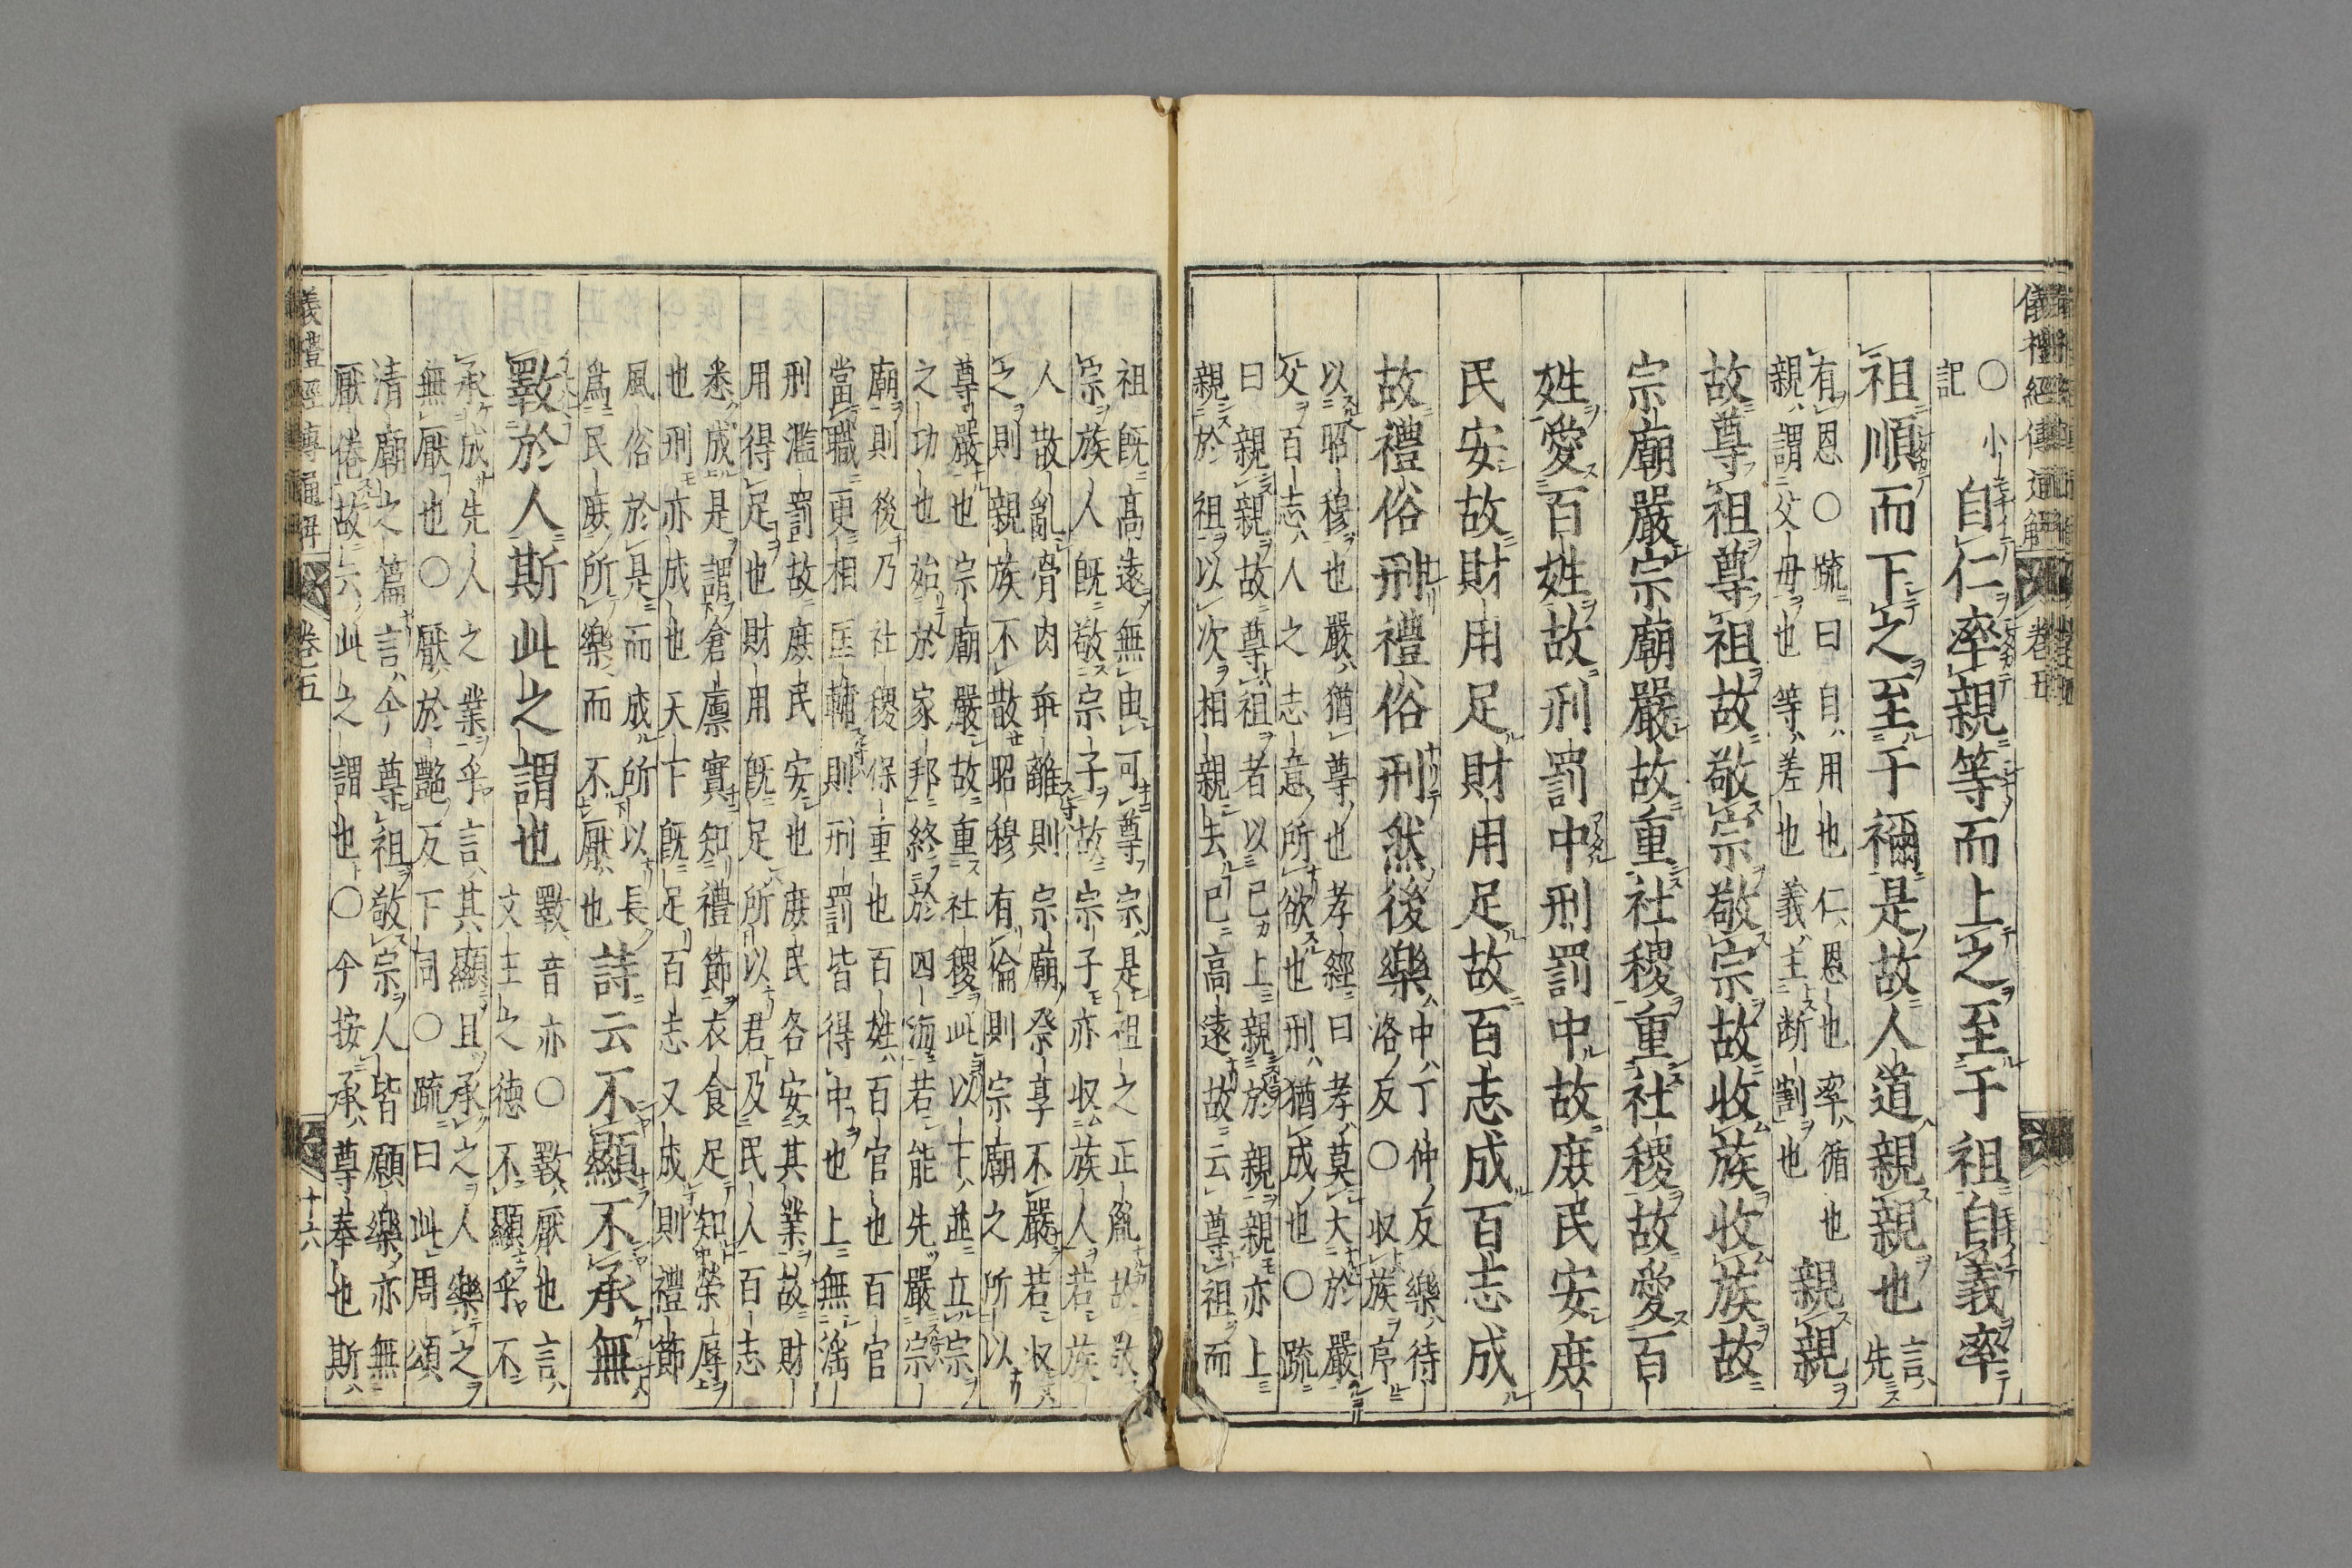 儀禮經傳通解 卷五
○小
記
自仁率親等而上之至于祖自義率
祖順而下之至于禰是故人道親親也
言
先
有恩○疏曰自用也仁恩也率循也
親謂父母也等差也義主斷割也
親親
故尊祖尊祖故敬宗敬宗故收族收族故
宗廟嚴宗廟嚴故重社稷重社稷故愛百
姓愛百姓故刑罰中刑罰中故庶民安庶
民安故財用足財用足故百志成百志成
故禮俗刑禮俗刑然後樂
中丁仲反樂待
洛反○收族序
以昭穆也嚴猶尊也孝經曰孝莫大於嚴
父百志人之志意所欲也刑猶成也○疏
曰親親故尊祖者以己上親於親親亦上
親於祖以次相親去己高遠故云尊祖而
祖既高遠無由可尊宗是祖之正胤故敬
宗族人既敬宗子故宗子亦收族人若族
人散亂骨肉乖離則宗廟祭享不嚴若收
之則親族不散昭穆有倫則宗廟之所以
尊嚴也宗廟嚴故重社稷此以下並立宗
之功也始於家邦終於四海若能先嚴宗
廟則後乃社稷保重也百姓百官也百官
當職更相匡輔則刑罰皆得中也上無淫
刑濫罰故庶民安也庶民各安其業故財
用得足也財用既足所以君及民人百志
悉成是謂倉廩實知禮節衣食足知榮辱
也刑亦成也天下既足百志又成則禮節
風俗於是而成所以長
爲民庶所樂而不厭也
詩云不顯不承無
斁於人斯此之謂也
斁音亦○斁厭也言
文王之德不顯乎不
承成先人之業乎言其顯且承之人樂之
無厭也○厭於艷反下同○疏曰此周頌
清廟之篇言今尊祖敬宗人皆願樂亦無
厭倦故云此之謂也○今按承尊奉也斯
儀禮經傳通解 卷五 十六